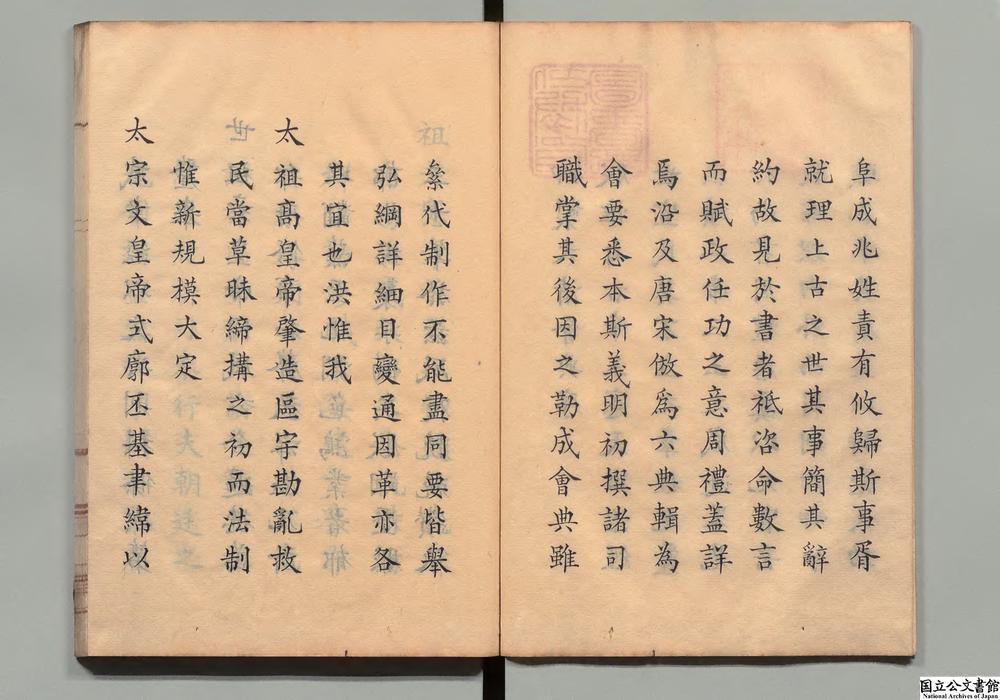 阜成兆姓責有攸歸斯事胥
就理上古之世其事簡其辭
約故見於書者祗咨命數言
而賦政任功之意周禮蓋詳
焉沿及唐宋倣爲六典輯為
會要悉本斯義明初撰諸司
職掌其後因之勒成會典雖
彙代制作不能盡同要皆舉
弘綱詳細目變通因革亦各
其宜也洪惟我
太祖高皇帝肇造區宇勘亂救
民當草昧締搆之初而法制
惟新規摸大定
太宗文皇帝式廓丕基書緯以
国立公文書館
National Archives of Japan